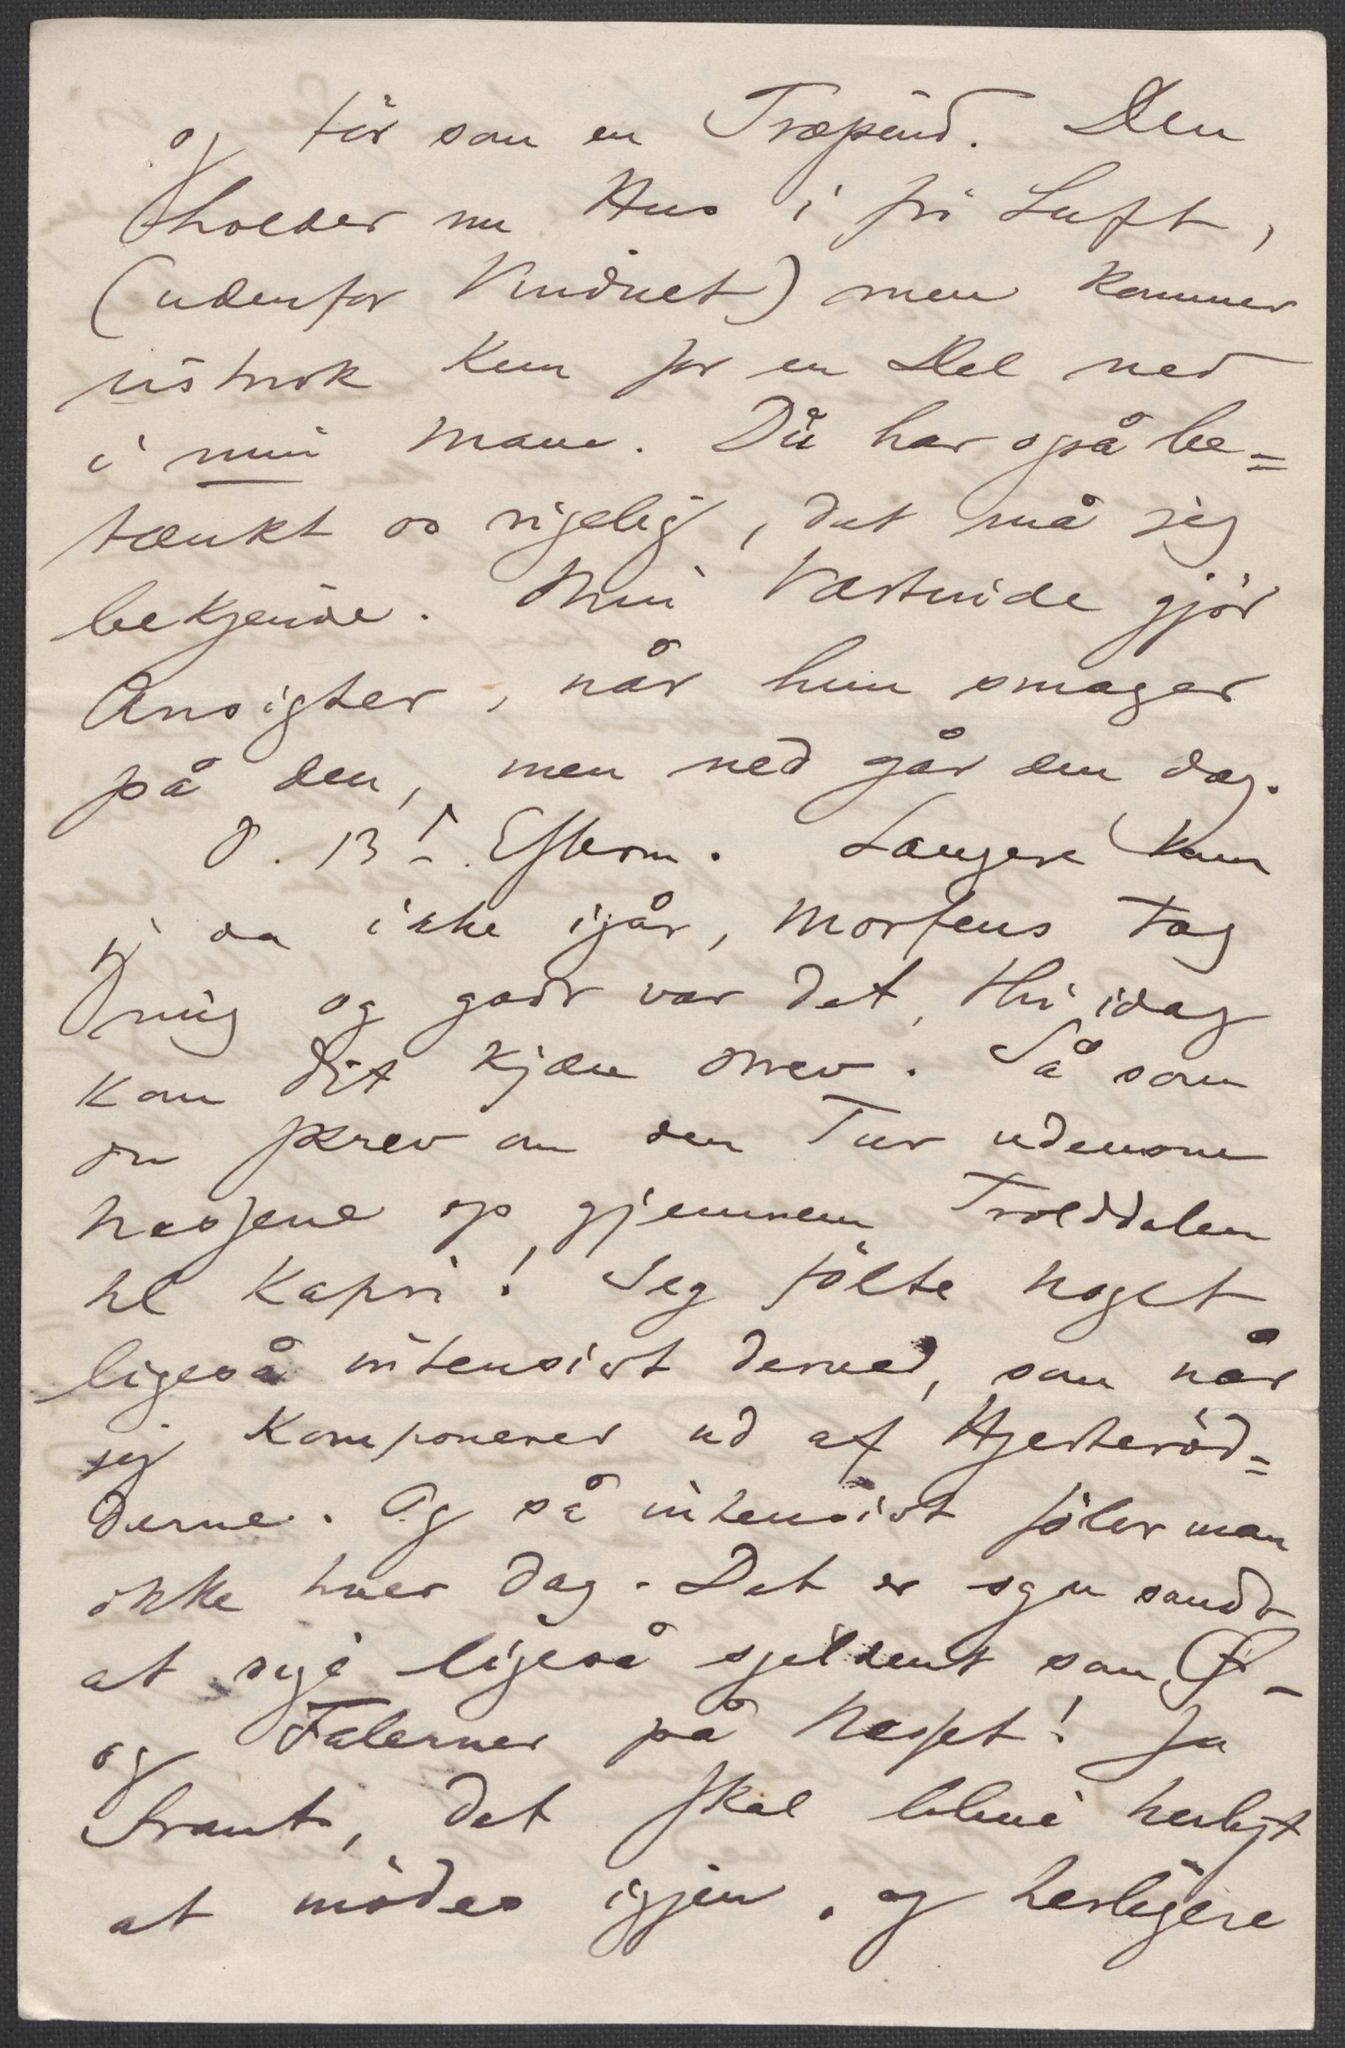 og tör som en Træpind. Den
holder nu Hus i fri Luft,
(udenfor Vinduet) men kommer
kun for en Del ned
i min Mave. Du har også be=
tænkt os rigelig, det må jeg
bekjende. Min Værtinde gjör
Ansigter, når hun smager
på den, men ned går den dog.
d. 13. Efterm. Længere kom
jeg da ikke igår, Morfeus tog
mig og godt var det, thi idag
kom dit kjære Brev. Så som
du skrev om den Tur udenom
Næssene op gjennem Trolddalen
til Kapri! Jeg fölte noget
ligeså intensivt derved, som når
jeg komponerer ud af Hjerteröd=
derne. Og så intensivt föler man
ikke hver Dag. Det er sgu sandt
at sige ligeså sjeldent som Ø-
og Falerner på Næsset! Ja
Frants, det skal blive herligt
at mödes igjen, og herligere